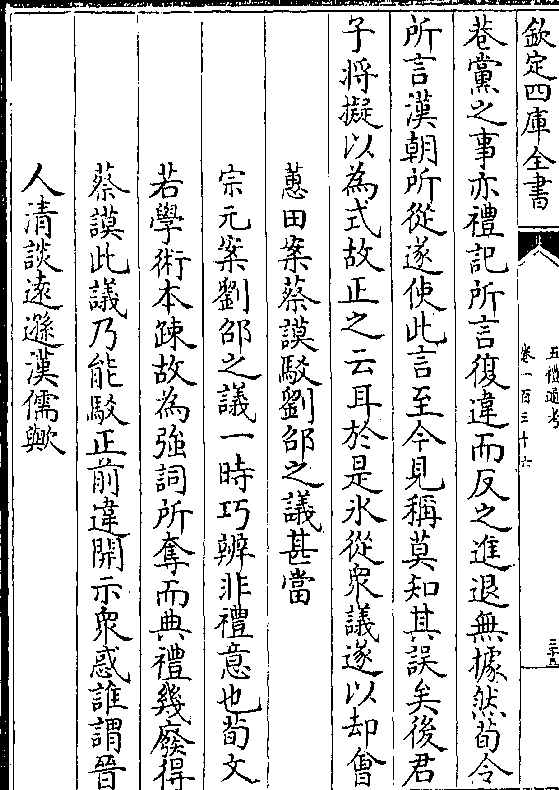 欽定四庫全書
五禮通考
卷一百三十六
三十五
巷黨之事亦禮記所言復違而反之進退無據然荀令
所言漢朝所從遂使此言至今見稱莫知其誤矣後君
子將擬以為式故正之云耳於是氷從衆議遂以却㑹
蕙田案蔡謨駁劉邵之議甚當
宗元案劉邵之議一時巧辨非禮意也荀文
若學術本踈故為強詞所奪而典禮幾廢得
蔡謨此議乃能駁正前違開示衆惑誰謂晉
人清談遠遜漢儒歟